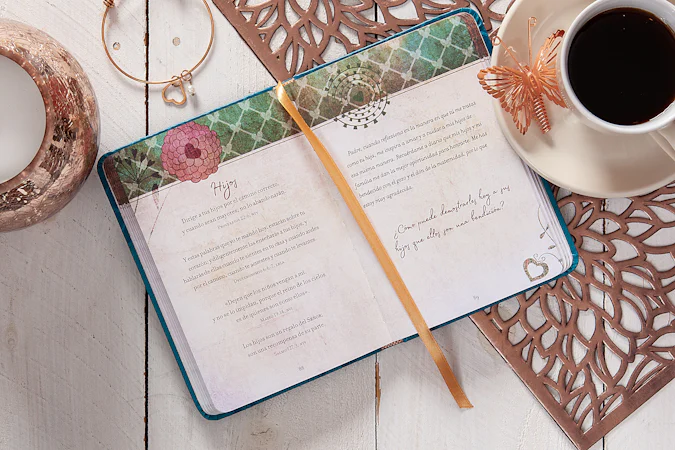 Hijos
Dirige a tus hijos por el camino correcto,
y cuando sean mayores, no lo abandonarán.
Proverbios 22: 6,
Y estas palabras que yo te mando hoy, estarán sobre tu
corazón; y diligentemente las enseñarás a tus hijos, y
hablarás de ellas cuando te sientes en tu casa y cuando andes
por el camino, cuando te acuestes y cuando te levantes.
Deuteronomio 6: 6-7,
«Dejen que los niños vengan a mí,
y no se lo impidan, porque el reino de los cielos
es de quienes son como ellos».
Mateo 19: 14,
Los hijos son un regalo del Señor;
son una recompensa de su parte.
Salmo 127: 3,
Padre, cuando reflexiono en la manera en que tú me amas
como tu hija, me inspira a amar y a cuidar a mis hijos de
esa misma manera. Recuérdame a diario que mis hijos y mi
familia me dan la mejor oportunidad para honrarte. Me has
bendecido con el gozo y el don de la maternidad, por lo que
estoy muy agradecida.
¿Cómo puede demostrarles hoy a sus
hijos que ellos son una bendición?